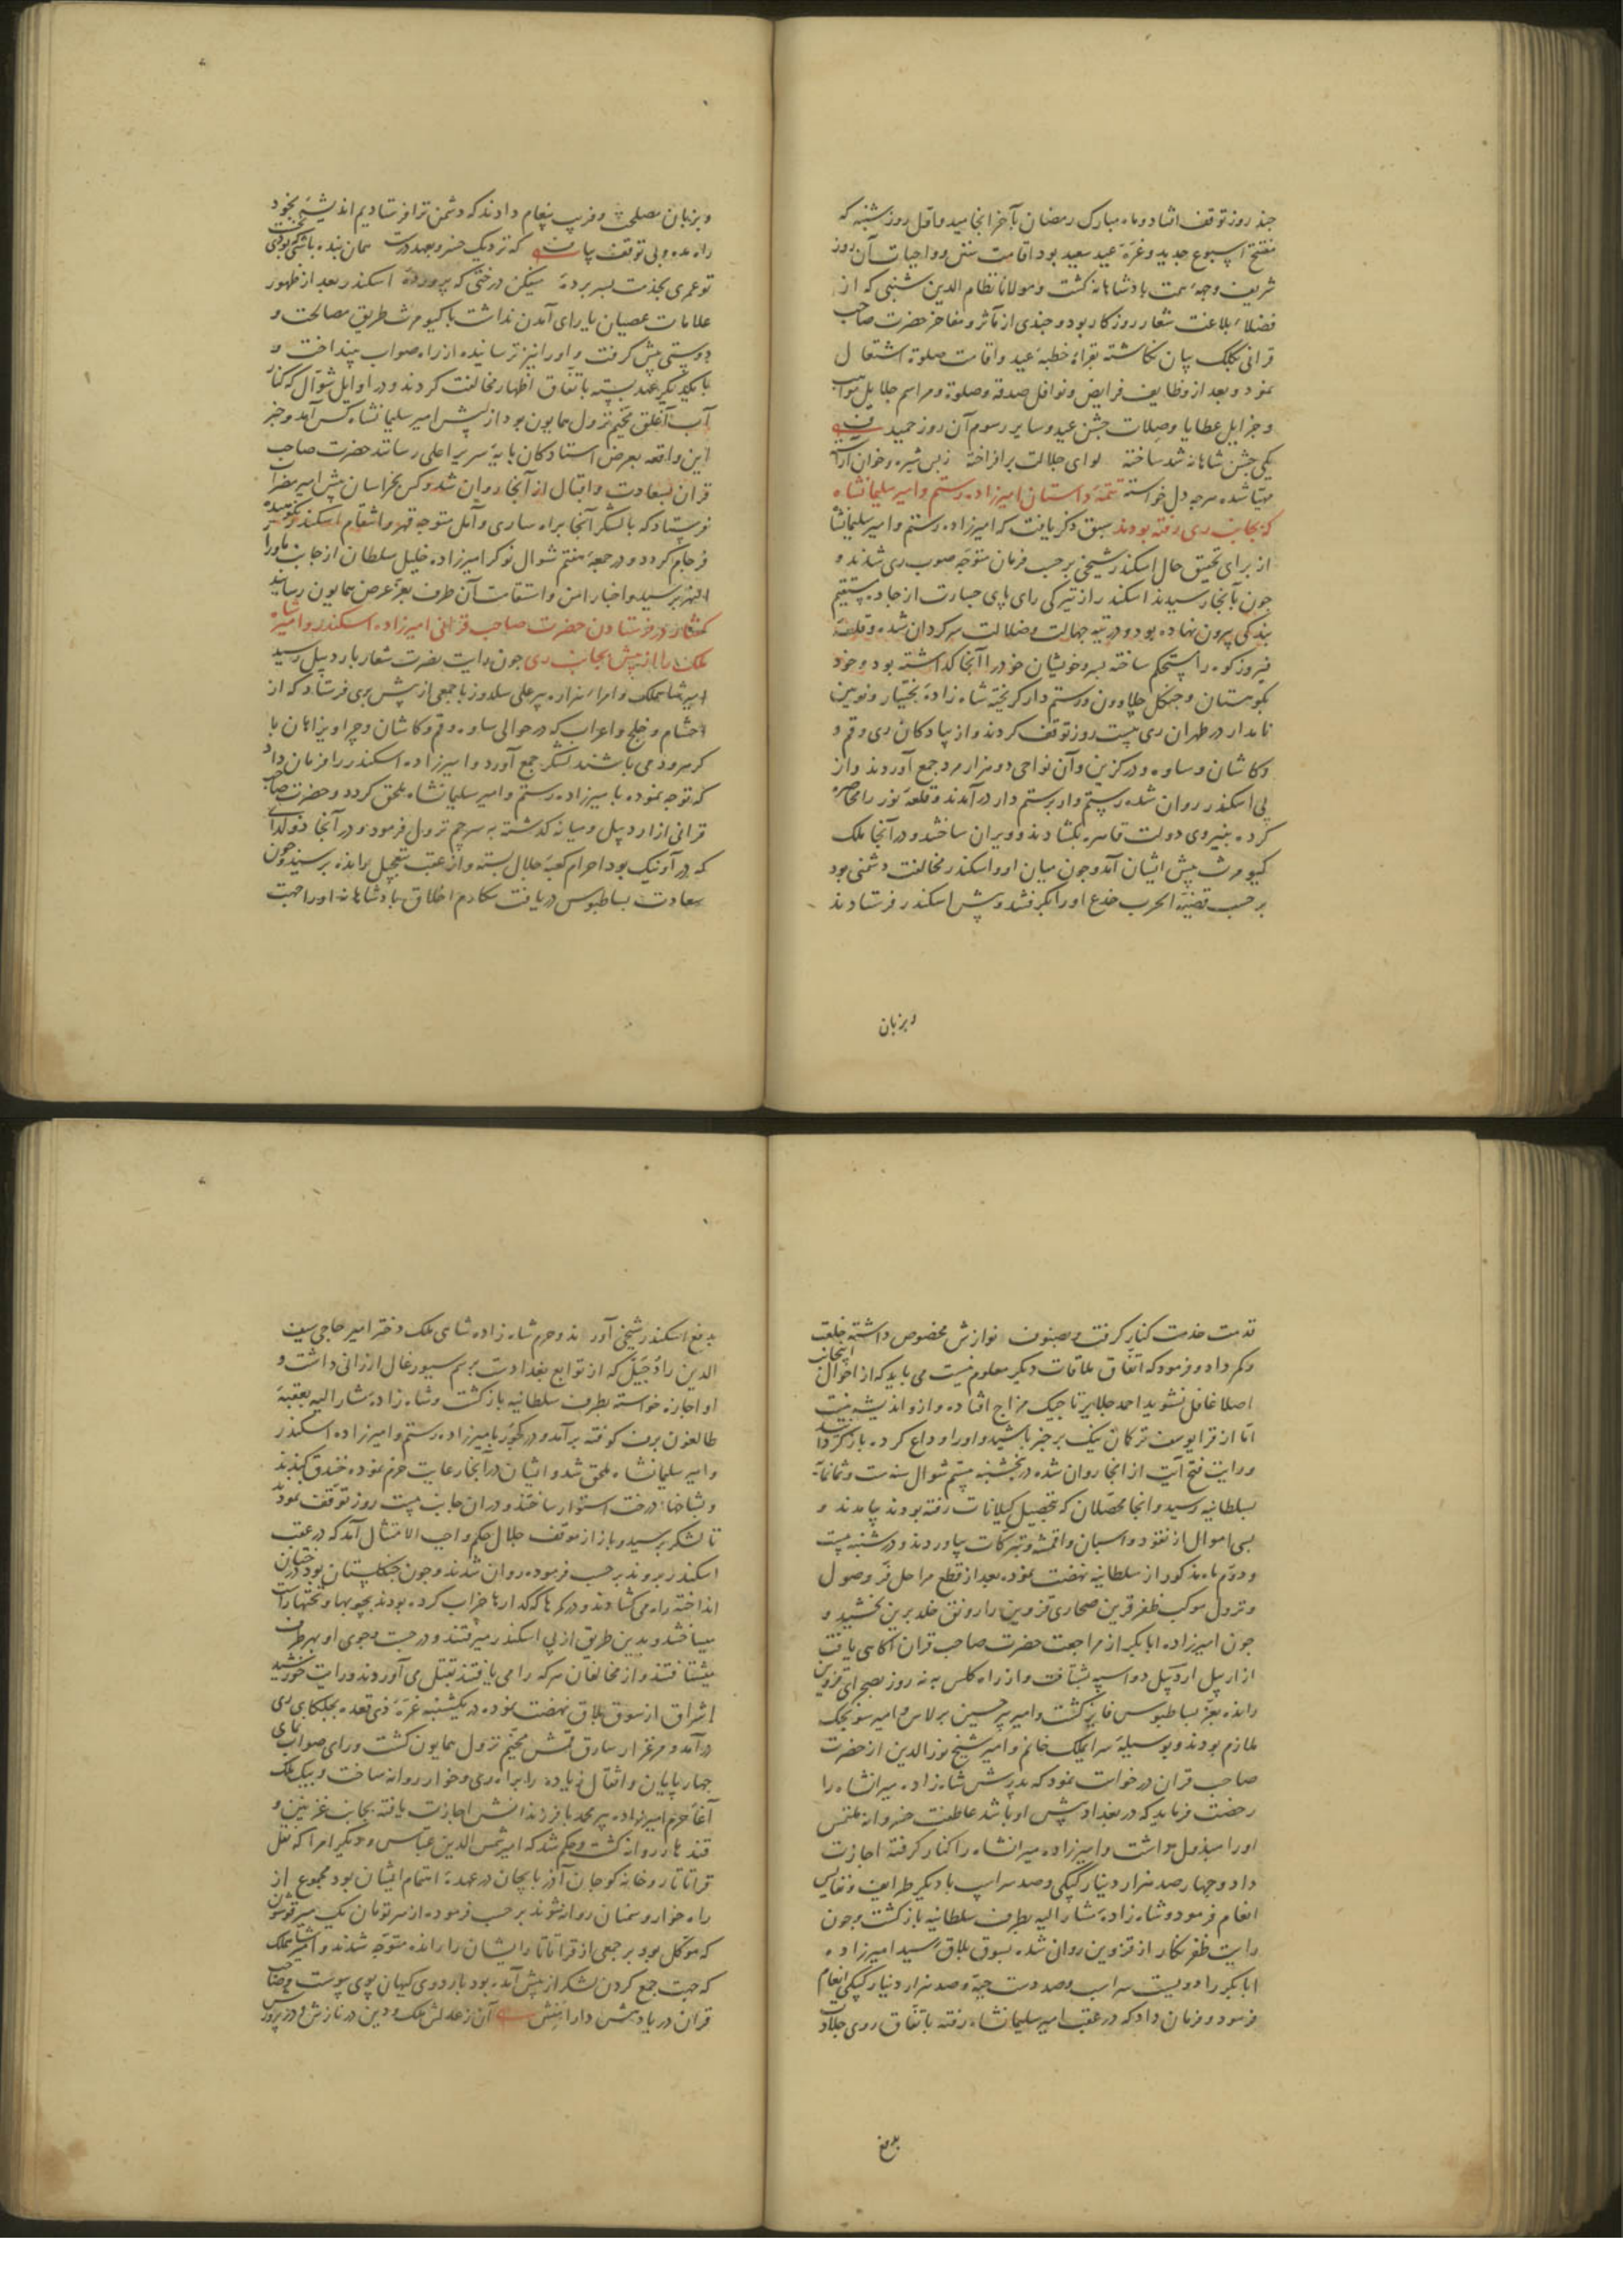 چند روز توقف افتاد و ماه مبارک رمضان بآخر انجامید و اول روز شنبه که
مفتتح اسبوع جدید و غرّهٔ عید سعید بود اقامت سنن و واجبات آن روز
شریف وجههٔ همت پادشاهانه گشت و مولانا نظام الدین شنبی که از
فضلاء بلاغت شعار روزگار بود و چندی از مآثر و مفاخر حضرت صاحب
قرانی بکلک بیان نگاشته بقراءة خطبهٔ عید و اقامت صلوة اشتغال
نمود و بعد از وظایف فرایض و نوافل صدقه و صلوة و مراسم جلایل مواهب
و جزایل عطایا و صلات جشن عید و سایر رسوم آن روز حمید
یکی جشن شاهانه شد ساخته لوای جلالت برافراخته زبس شیره و خوان آراسته
مهیا شده هرچه دل خواسته تتمهٔ داستان امیرزاده رستم و امیر سلیمانشاه
که بجانب ری رفته بودند سبق ذکر یافت که امیرزاده رستم و امیر سلیمانشاه
از برای تحقیق حال اسکندر شیخی بر حسب فرمان متوجه صوب ری شدند و
چون بآنجا رسیدند اسکندر از تیرگی رای پای جسارت از جاده مستقیم
بندگی بیرون نهاده بود و در تیه جهالت و ضلالت سرگردان شده و قلعهٔ
فیروزکوه را مستحکم ساخته پسر و خویشان خود را آنجا گذاشته بود و خود
بکوهستان و جنگل چلاوون و رستمدار گریخته شاه زادهٔ بختیار و نویین
نامدار در طهران ری بیست روز توقف کردند و از پیادگان ری و قم و
و کاشان و ساوه و درگزین و آن نواحی دو هزار مرد جمع آوردند و از
پی اسکندر روان شده رستم وار برستم دار درآمدند و قلعهٔ نور را محاصره
کرده بنیروی دولت قاهره بگشادند و ویران ساختند و در آنجا ملک
کیومرث پیش ایشان آمد و چون میان او و اسکندر مخالفت و دشمنی بود
بر حسب قضیهٔ الحرب خدع او را بگرفتند و پیش اسکندر فرستادند
و بزبان
و بزبان مصلحت و فریب پیغام دادند که دشمن ترا فرستادیم اندیشه بخود
راه مده و بی توقف بیا که نزدیک خسرو بعهد درست همان بنده باشی که بودی نخست
تو عمری بخدمت بسر برده میفکن درختی که پرورده اسکندر بعد از ظهور
علامات عصیان یارای آمدن نداشت با کیومرث طریق مصالحت و
دوستی پیش گرفت و او را نیز ترسانیده از راه صواب بینداخت و
با یکدیگر عهد بسته باتفاق اظهار مخالفت کردند و در اوایل شوال که کنار
آب آغلق مخیم نزول همایون بود از پیش امیر سلیمانشاه کس آمد و خبر
این واقعه بعرض استادگان پایهٔ سریر اعلی رسانید حضرت صاحب
قران بسعادت و اقبال از آنجا روان شد و کس بخراسان پیش امیر مضراب
فرستاد که با لشکر آنجا براه ساری و آمل متوجه قهر و انتقام اسکندر نکوهیده
فرجام گردد و در جمعهٔ هفتم شوال نوکر امیرزاده خلیل سلطان از جانب ماورا
النهر برسید و اخبار امن و استقامت آن طرف بعزّ عرض همایون رسانید
گفتار در فرستادن حضرت صاحب قرانی امیرزاده اسکندر و امیر شاه
ملک را از پیش بجانب ری چون رایت نصرت شعار باردبیل رسید
امیر شاهملک و امراء هزاره پیرعلی سلدوز با جمعی از پیش بری فرستاد که از
احشام و خلج و اعراب که در حوالی ساوه و قم و کاشان و چرا و پراهان با
کرهرود می باشند لشکر جمع آورد و امیرزاده اسکندر را فرمان داد
که توجه نموده با میرزاده رستم و امیر سلیمانشاه ملحق گردد و حضرت صاحب
قرانی از اردبیل و میانه گذشته به سرچم نزول فرمود و در آنجا دولدای
که در آونیک بود احرام کعبهٔ جلال بسته و از عقب بتعجیل رانده برسید و چون
بسعادت بساط بوس دریافت مکارم اخلاق پادشاهانه او را جهت
قدمت خدمت کنار گرفت و بصنوف نوازش مخصوص داشته خلعت
و کمر داد و فرمود که اتفاق ملاقات دیگر معلوم نیست می باید که از احوال اینجانب
اصلا غافل نشوید احمد جلایر تاجیک مزاج افتاده و از و اندیشه نیست
اما از قرا یوسف ترکمان نیک بر حذر باشید و او را وداع کرده باز گردانید
و رایت فتح آیت از آنجا روان شده در پنجشنبه بیستم شوال سنه ست و ثمانمایه
بسلطانیه رسید و آنجا محصلان که بتحصیل گیلانات رفته بودند بیامدند و
بسی اموال از نقود و اسبان و اقمشه و تبرکات بیاوردند و در شنبه بیست
و دوّم ماه مذکور از سلطانیه نهضت نموده بعد از قطع مراحل فرّ وصول
و نزول موکب ظفر قرین صحاری قزوین را رونق خلد برین بخشید و
چون امیرزاده ابابکر از مراجعت حضرت صاحب قران آگاهی یافت
از اربیل اردبیل دو اسپه بشتافت و از راه کلس به نه روز بصحرای قزوین
رانده بعزّ بساط بوس فایز گشت و امیر پیر حسین برلاس و امیر سونجک
ملازم بودند و بوسیلهٔ سرایملک خانم و امیر شیخ نورالدین از حضرت
صاحب قران درخواست نمود که پدرش شاه زاده میرانشاه را
رخصت فرماید که در بغداد پیش او باشد عاطفت خسروانه ملتمس
او را مبذول داشت و امیرزاده میرانشاه را کنار گرفته اجازت
داد و چهارصد هزار دینار کپکی و صد سر اسب با دیگر طرایف و نفایس
انعام فرمود و شاه زادهٔ مشار الیه بطرف سلطانیه بازگشت و چون
رایت ظفر نگار از قزوین روان شده بسوق بلاق رسید امیرزاده
ابابکر را دویست سر اسب و صد دست جبه و صد هزار دینار کپکی انعام
فرمود و فرمان داد که در عقب امیر سلیمانشاه رفته باتفاق روی جلادت
بدفع
بدفع اسکندر شیخی آورند و حرم شاه زاده شاهی ملک دختر امیر حاجی سیف
الدین را دُجَیل که از توابع بغدادست برسم سیورغال ارزانی داشت و
او اجازه خواسته بطرف سلطانیه بازگشت و شاه زادهٔ مشار الیه بعقبهٔ
طالغون برف کوفته برآمد و در کجور بامیرزاده رستم و امیرزاده اسکندر
و امیر سلیمانشاه ملحق شد و ایشان در آنجا رعایت حزم نموده خندق کندند
و بشاخهاء درخت استوار ساختند و دران جانب بیست روز توقف نمودند
تا لشکر برسید و باز از موقف جلال حکم واجب الامتثال آمد که در عقب
اسکندر بروند بر حسب فرموده روان شدند و چون جنگلستان بود درختان
انداخته راه می گشادند و در گرهها که گدارها خراب کرده بودند بچوبها و تختها راست
میساختند و بدین طریق از پی اسکندر میرفتند و در جست و جوی او بهر طرف
میشتافتند و از مخالفان هر که را می یافتند بقتل می آوردند و رایت خورشید
اشراق از سوق بلاق نهضت نموده در یکشنبه غرهٔ ذی قعده بجلکای ری
درآمد و مرغزار سارق قمش مخیم نزول همایون گشت و رای صواب نمای
چهارپایان و اثقال زیاده را براه ری و خوار روانه ساخت و بیک ملک
آغا حرم امیرزاده پیر محمد با فرزندانش اجازت یافته بجانب غزنین و
قندهار روانه گشت و حکم شد که امیر شمس الدین عباس و دیگر امرا که نقل
قراتاتار و خانه کوچان آذربایجان در عهدهٔ اهتمام ایشان بود مجموع از
راه خوار و سمنان روانه شوند بر حسب فرموده از هر تومان یک میر قوشون
که موکل بود بر جمعی از قراتاتار ایشان را رانده متوجه شدند و امیر شاهملک
که جهت جمع کردن لشکر از پیش آمده بود باردوی کیهان پوی پیوست و صاحب
قران دریا دهش دارا منش آن ز عدلش ملک و دین در نازش و در پرورش